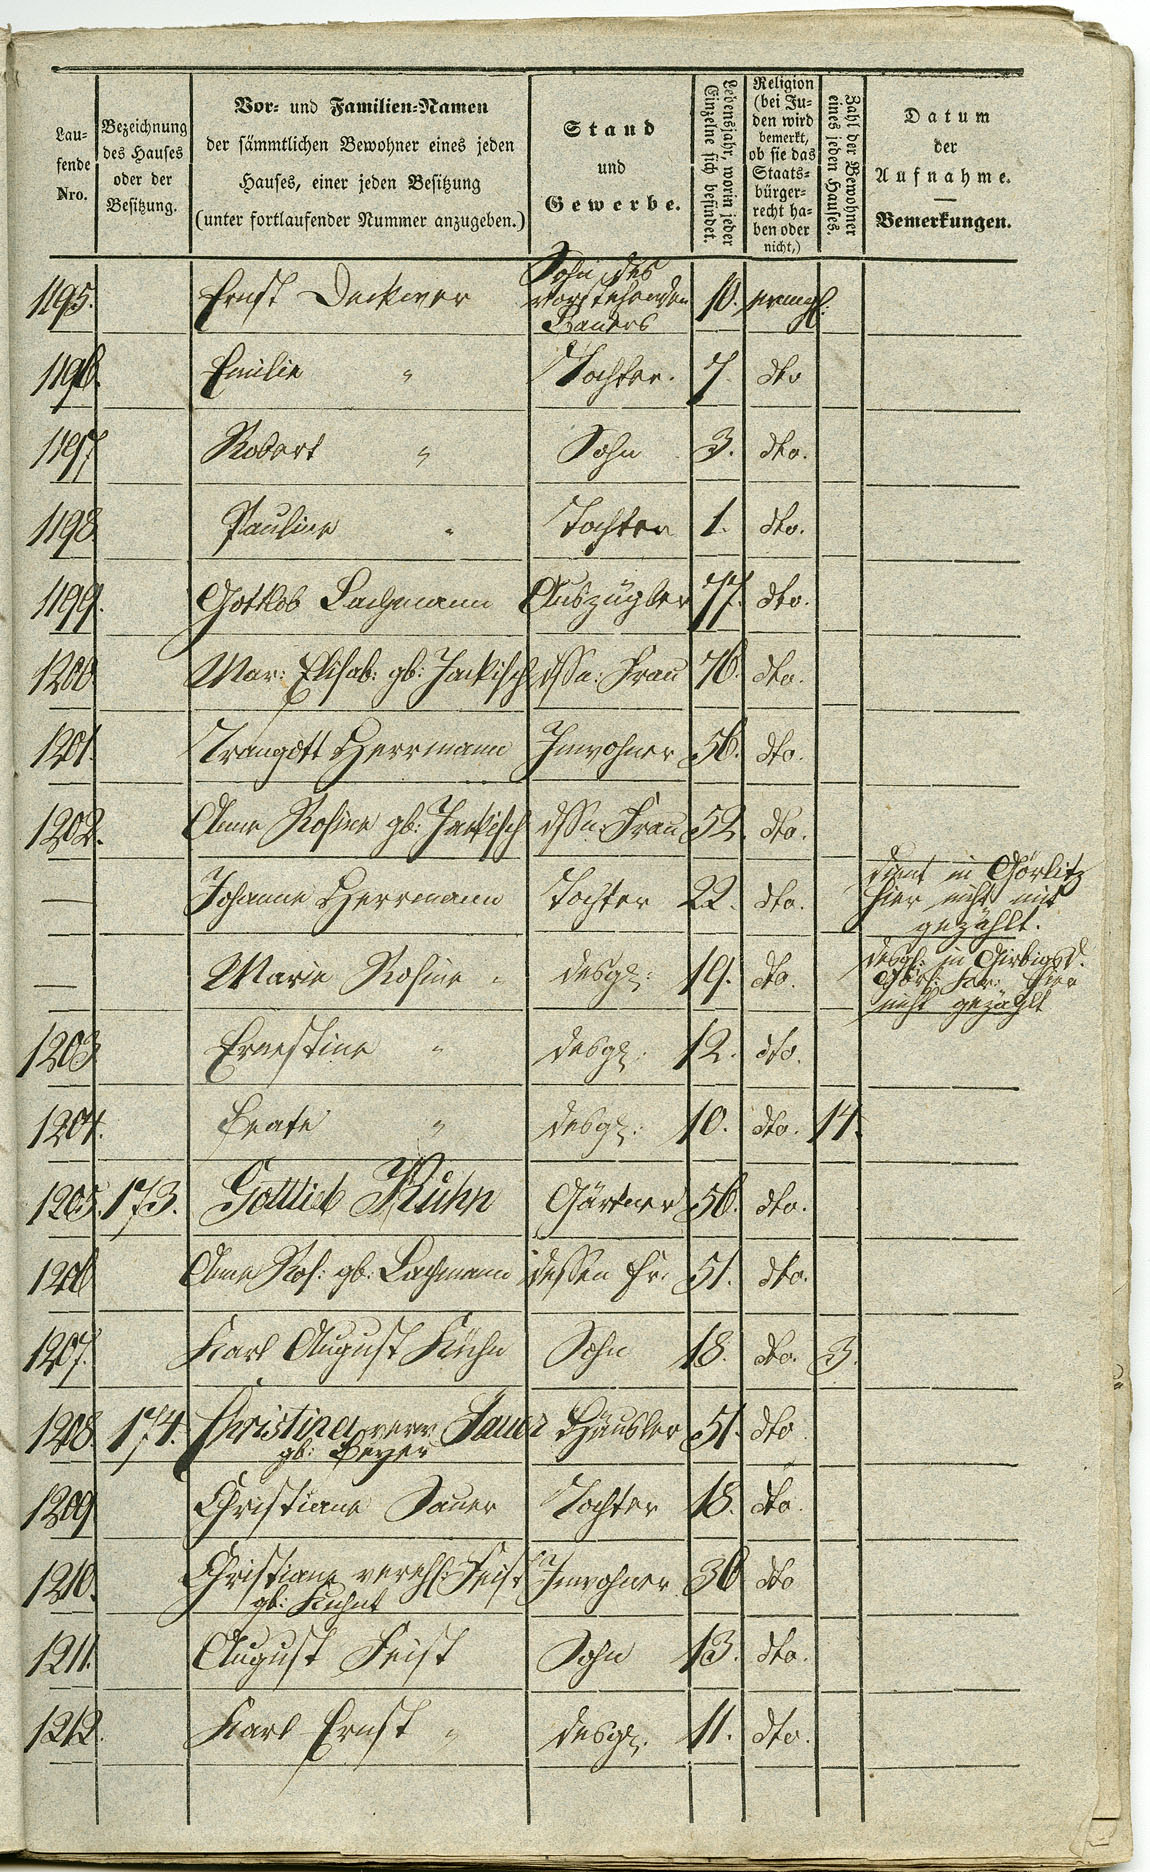 Lau-
fende
Nro.
Bezeichnung
des Hauses
oder der
Besitzung.
Vor- und Familien-Namen
der sämmtlichen Bewohner eines jeden
Hauses, einer jeden Besitzung
(unter fortlaufender Nummer anzugeben.)
Stand
und
Gewerbe.
Lebensjahr, worin jeder
Einzelne sich befindet.
Religion
(bei Ju-
den wird
bemerkt,
ob sie das
Staats-
bürger-
recht ha-
ben oder
nicht,)
Zahl der Bewohner
eines jeden Hauses.
Datum
der
Aufnahme.
Bemerkungen.
Sohn des
vorstehenden
1195. Ernst Deckwer 10. evangl:
Bauers
1196. Emilie " Tochter. 7. dto
1197 Robert " Sohn 3. dto.
1198 Pauline " Tochter 1. dto.
1199. Gottlob Lachmann Auszügler 77. dto.
1200 Mar: Elisab: gb: Jackisch dssn: Frau 76. dto.
1201. Traugott Herrmann Inwohner 56. dto.
1202. Anne Rosine gb: Jackisch dssn: Frau 52. dto.
— Johanne Herrmann Tochter 22. dto. dient in Görlitz
hier nicht mit
gezählt.
— Marie Rosine " desgl: 19. dto. desgl: in Girbigsd.
hier
nicht gezählt
1203 Ernestine " desgl: 12. dto.
1204. Beate " desgl: 10. dto. 14.
1205. 173. Gottlieb Kühn Gärtner 56. dto.
1206 Anne Ros: gb: Lachmann dessen Fr: 51. dto.
1207. Karl August Kühn Sohn 18. dto. 3.
1208 174. Christiane verw Sauer Häusler 51. dto
gb: Beyer
1209 Christiane Sauer Tochter 18. dto.
1210. Christiane verehl: Feist Inwohner 36 dto
gb: Kuhnt
1211. August Feist Sohn 13. dto.
1212. Karl Ernst " desgl. 11. dto.